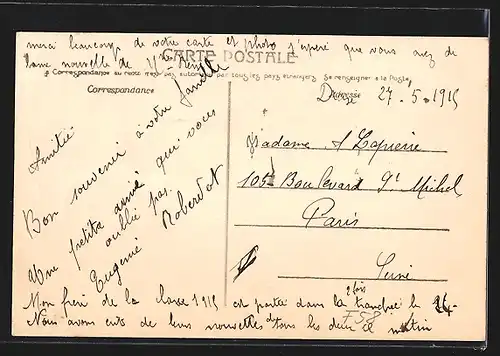 merci beaucoup de votre carte et photo j'espère que vous avez de
bonne nouvelle de Mr Remy
CARTE POSTALE
Correspondance au recto n'est pas autorisée par tous les pays étrangers. Se renseigner à la Poste
Correspondance
Adresse
27-5-1915
Amitié à votre famille
Bon souvenir
Une petite amie qui vous
oublie pas.
Eugénie Roberdot
Madame Lapierre
105 Boulevard St Michel
Paris
Seine
Mon frère de la classe 1915 est partie dans la tranchée le 24-
2 fois
Nous avons eut de leurs nouvelles de tous les deux ce matin
F58